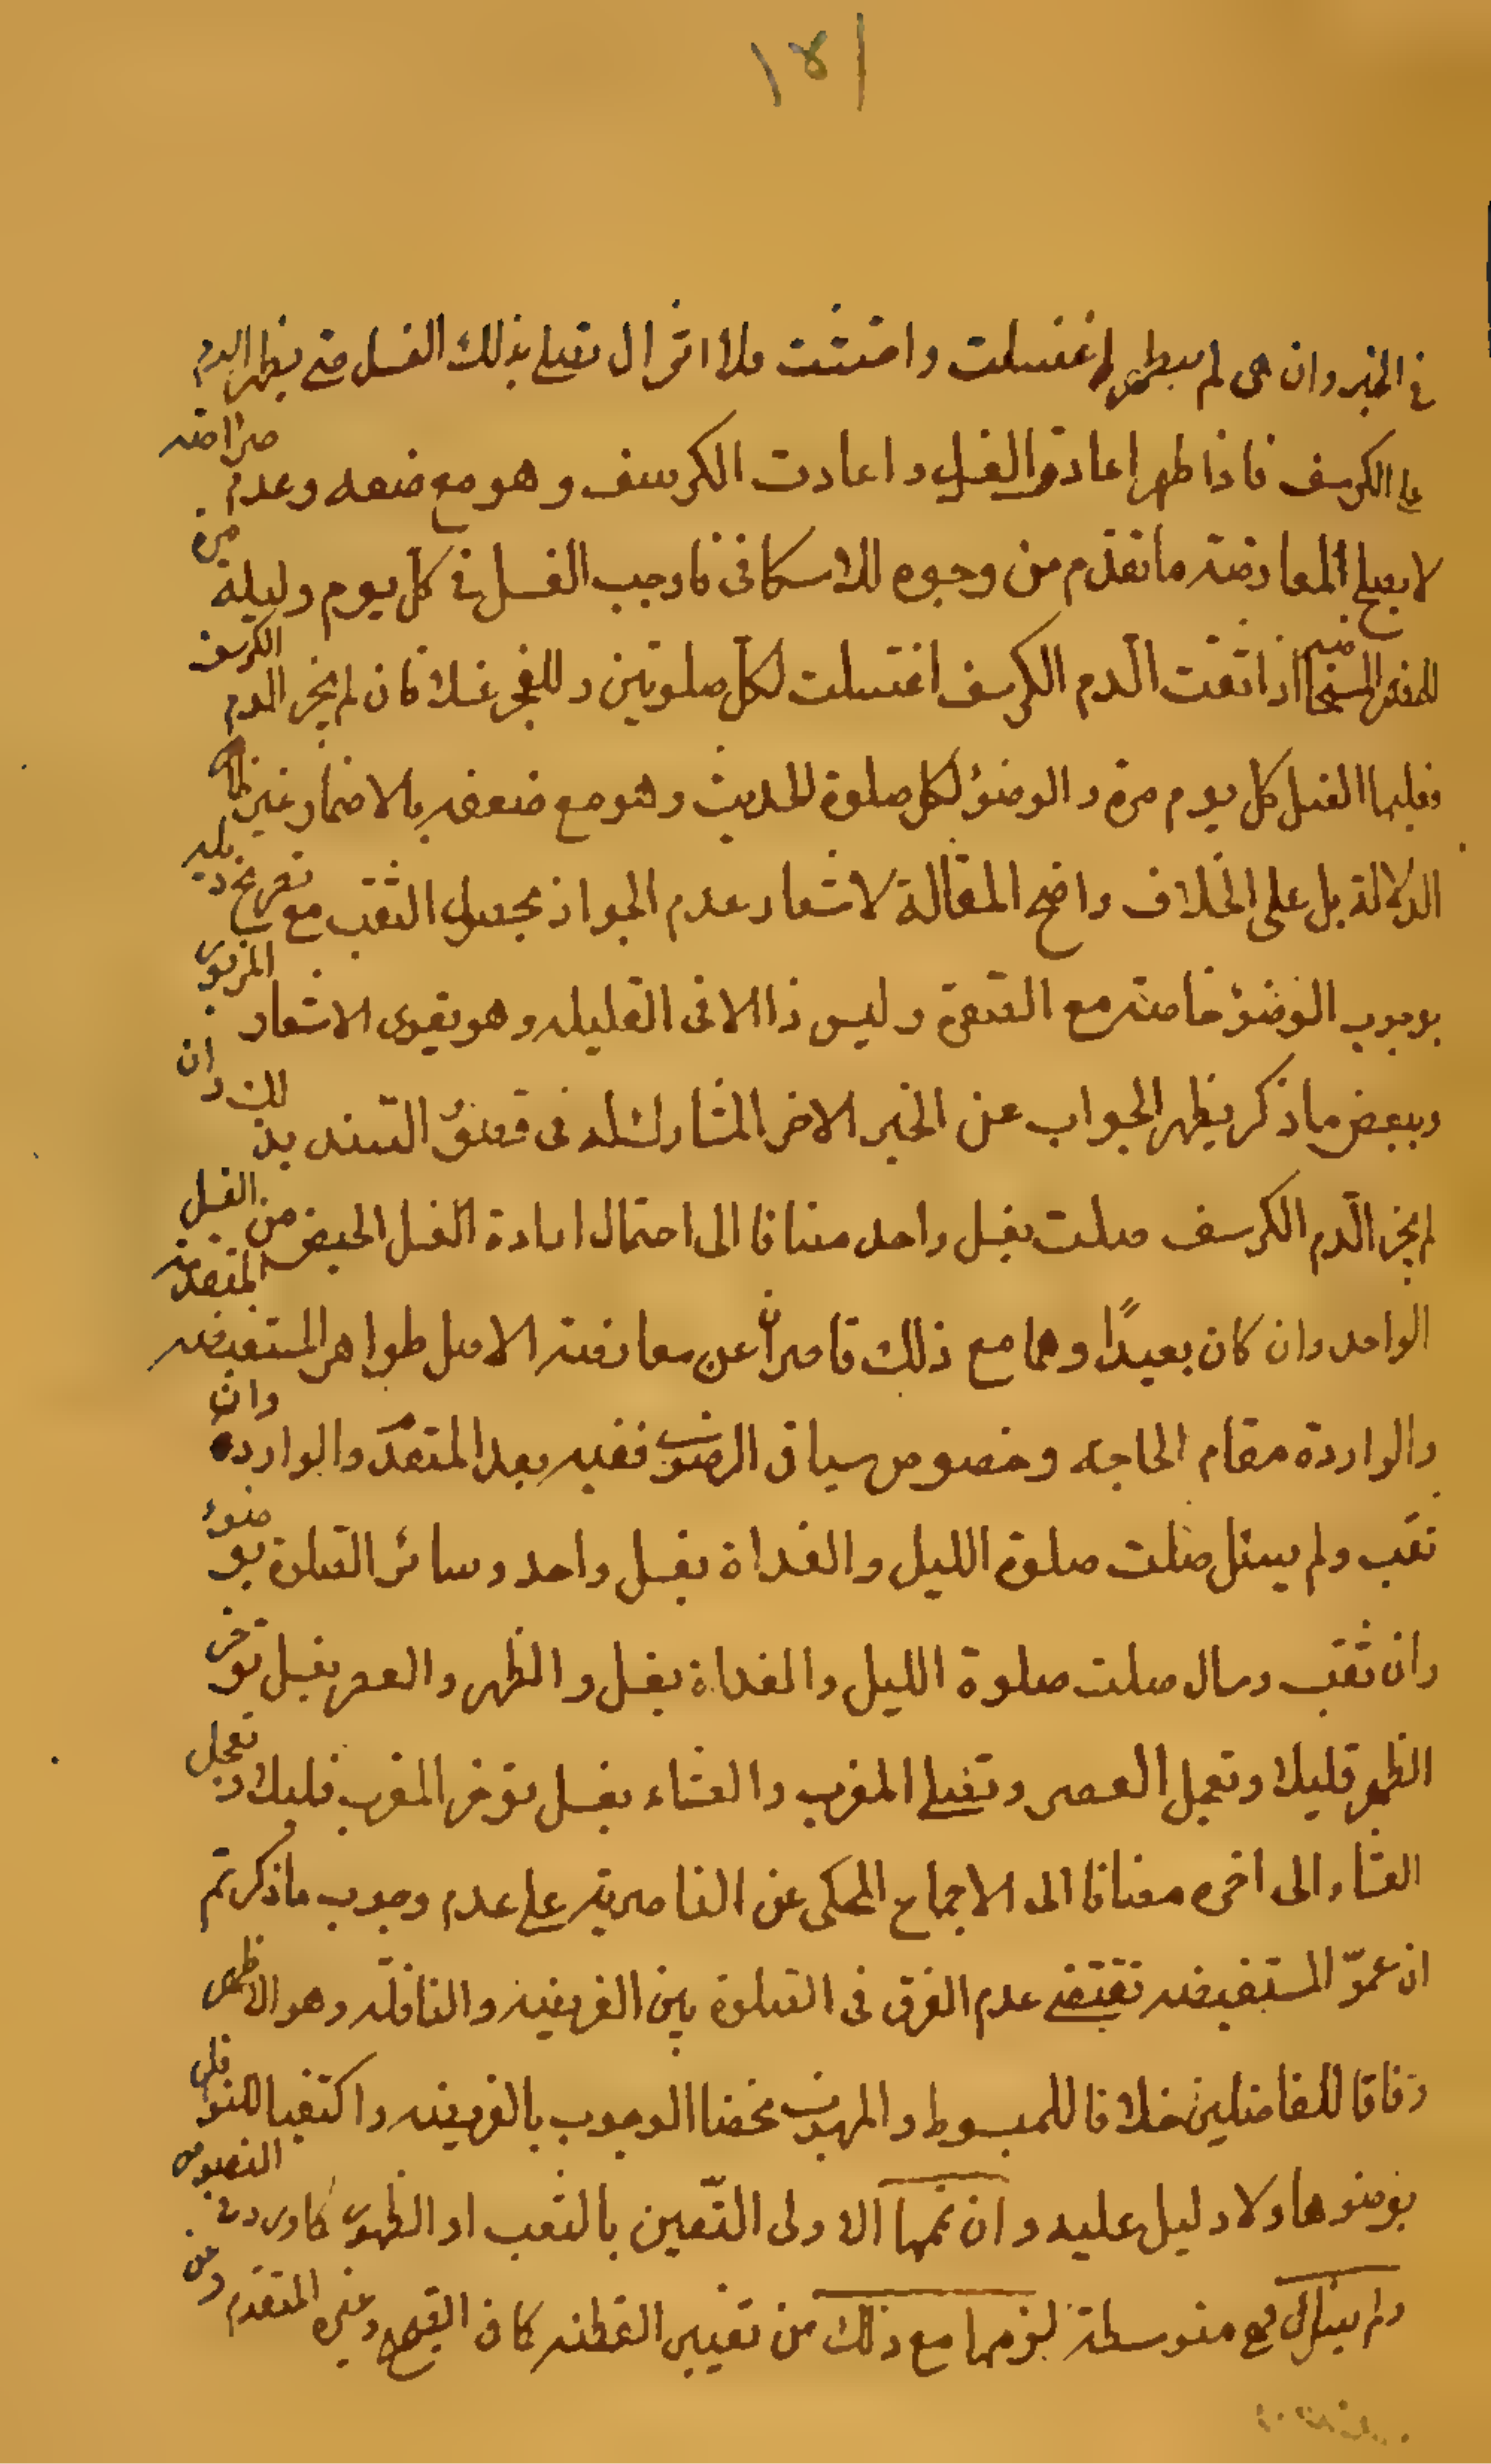 ١٥١
في الخبر وان هى لم يظهر اغتسلت واحتشت ولا تزال تصلي بذلك الغسل حتى يظهر الدم
على الكرسف فاذا ظهر اعادة الغسل واعادت الكرسف وهو مع ضعفه وعدم صراحته
لا يصلح لمعارضته ما تقدم من وجوه للاسكافى فاوجب الغسل في كل يوم وليلة مرة
للمضمر المستحاضه اذا ثقب الدم الكرسف اغتسلت لكل صلوتين وللفجر غسلا فان لم يجز الدم الكرسف
فعليها الغسل كل يوم مرة والوضوء لكل صلوة للحديث وهو مع ضعفه بالاضمار غير ظاهر
الدلالة بل على الخلاف واضح المقالة لاشعار عدم الجواز بحصول الثقب مع تصريح ذيله
بوجوب الوضوء خاصة مع الصفرة وليس ذا الا فى القليله وهو يقوى الاشعار المزبور
وببعض ما ذكر يظهر الجواب عن الخبر الاخر المشارك له فى قصور السند بذلك وان
لم يجز الدم الكرسف صلت بغسل واحد مضافا الى احتمال ارادة الغسل الحيض من الغسل
الواحد وان كان بعيدًا وهما مع ذلك قاصران عن معارضة الاصل ظواهر المستفيضه المتقدمه
والواردة مقام الحاجه وخصوص سياق الرضوى ففيه بعد المتقدم والوارده وان
ثقب ولم يسئل صلت صلوة الليل والغداة بغسل واحد وسائر الصلوة بوضوء
وان ثقب وسال صلت صلوة الليل والغداة بغسل والظهر والعصر بغسل توخر
الظهر قليلا وتعجل العصر وتصلي المغرب والعشاء بغسل توخر المغرب قليلا وتعجل
العشاء الى اخره مضافا الى الاجماع المحكى عن الناصرية على عدم وجوب ما ذكر ثم
ان عموم المستفيضه تقتضي عدم الفرق فى الصلوة بين الفريضه والنافله وهو الاظهر
وفاقا للفاضلين خلافا للمبسوط والمهذب فخصا الوجوب بالفريضه واكتفيا للنوافل
بوضوها ولا دليل عليه وان غمسها الاولى التعبير بالثقب او الظهور كما ورد فى النصوص
ولم يسل فهى متوسطة لزمها مع ذلك من تغيير القطنه كما فى الصحيح وغيره المتقدم وعن